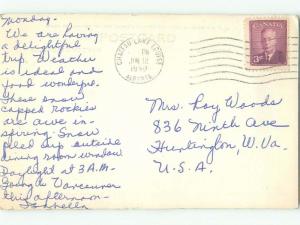 Monday.
We are having
a delightful
trip. Weather
is ideal and
food wonderful.
These snow
capped Rockies
are awe in-
spiring. Snow
piled up outside
dining room window
Daylight at 3 A.M.
Going to Vancouver
this afternoon -
Isabella
POST CARD
CHATEAU LAKE LOUISE
PM
JUN 12
1950
ALBERTA
CANADA
3
Mrs. Roy Woods
836 Ninth Ave
Huntington, W. Va.
U.S.A.